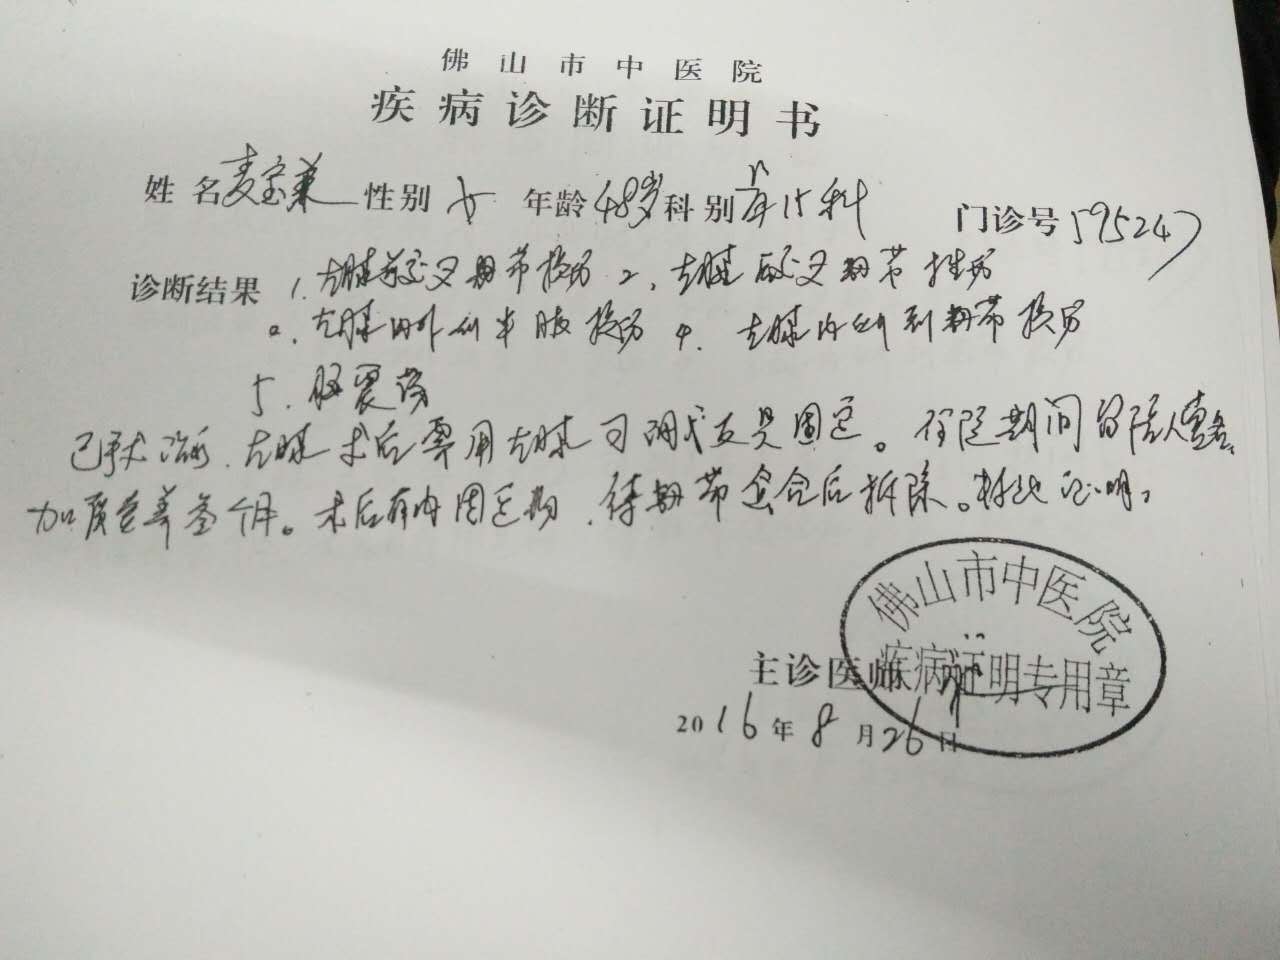 佛山市中医院
疾病诊断证明书
姓名 麦宝 性别 女 年龄 48岁 科别 科 门诊号 595247
诊断结果 1.左膝前交叉韧带损伤 2.左膝后交叉韧带损伤
3.左膝内外侧半月板损伤 4.左膝内侧副韧带损伤
5.脑震荡
已予术治疗.左膝术后需用左膝可调式支具固定。住院期间留陪人壹名、
加强营养叁个月。术后有内固定物,待韧带愈合后拆除。特此证明。
佛山市中医院
疾病证明专用章
主诊医师
2016年8月26日